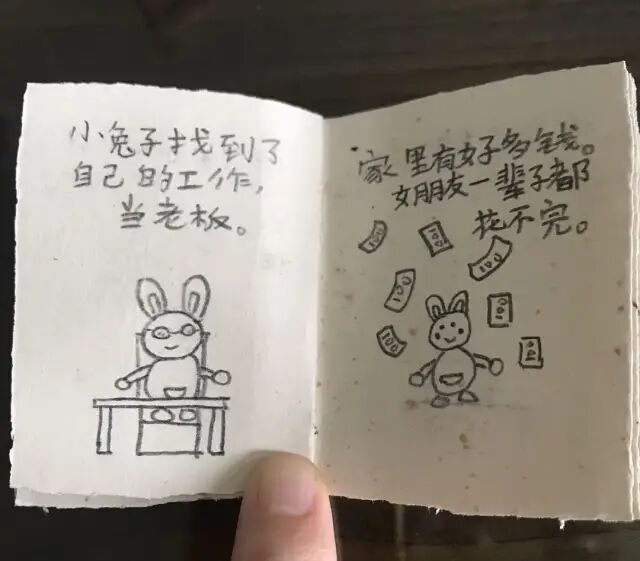 小兔子找到了
自己的工作，
当老板。
家里有好多钱。
女朋友一辈子都
花不完。
100
100
100
100
100
100
100